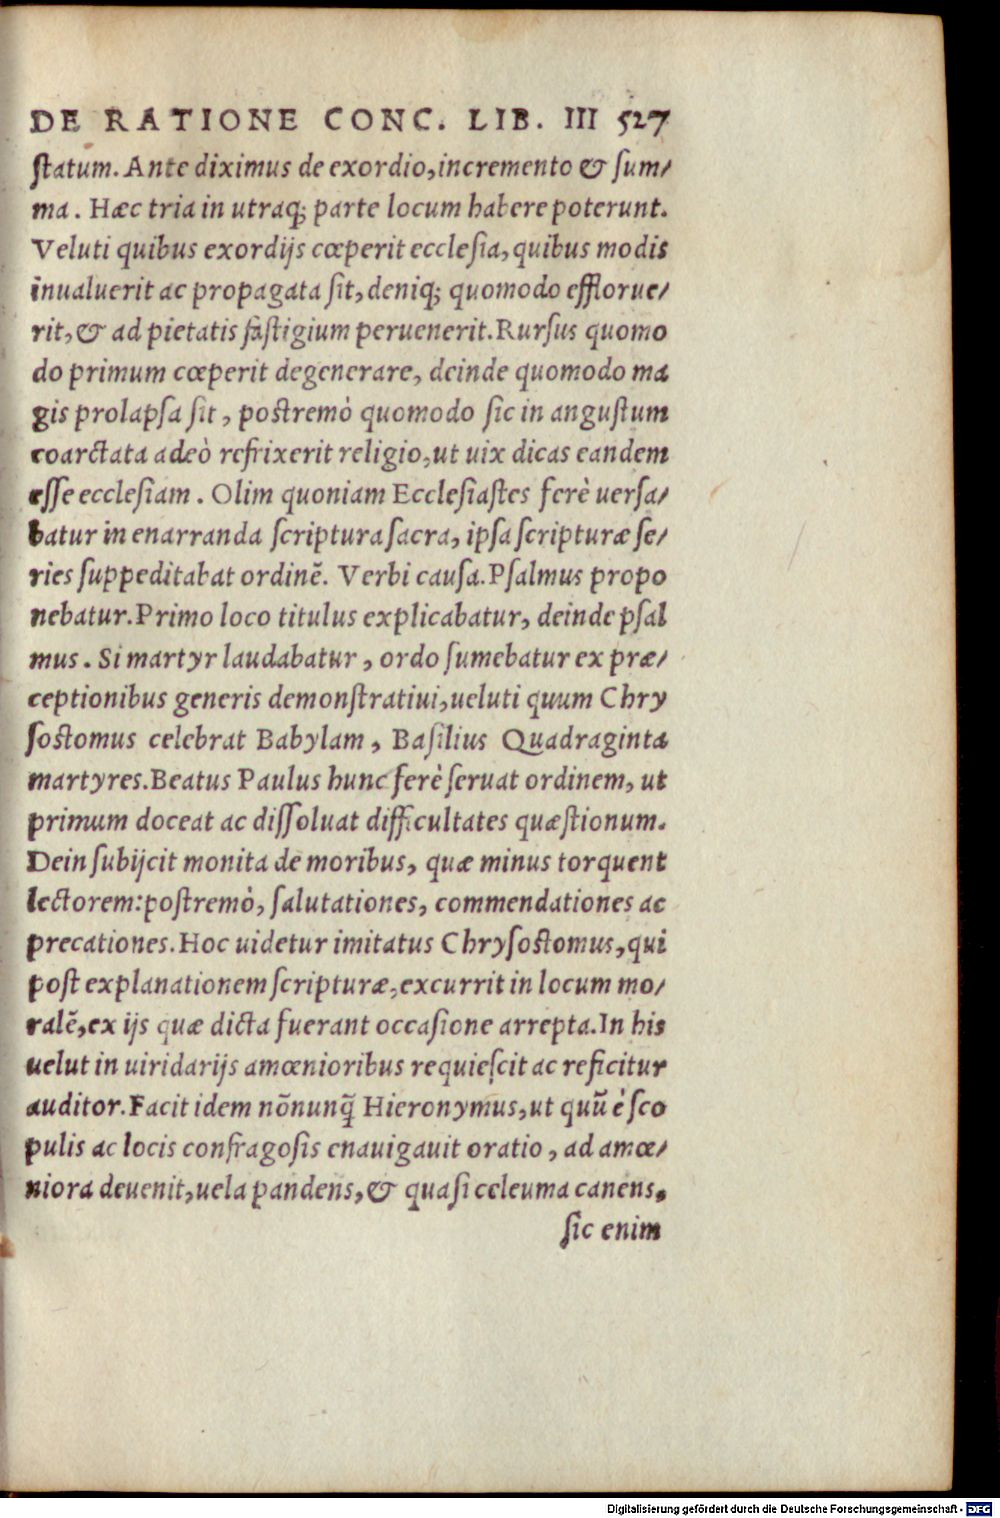 DE RATIONE CONC. LIB. III 527
ſtatum. Ante diximus de exordio, incremento & ſum/
ma. Hæc tria in utraq; parte locum habere poterunt.
Veluti quibus exordijs cœperit eccleſia, quibus modis
inualuerit ac propagata ſit, deniq; quomodo effloruе/
rit, & ad pietatis faſtigium peruenerit. Rurſus quomo
do primum cœperit degenerare, deinde quomodo ma
gis prolapſa ſit, poſtremò quomodo ſic in anguſtum
coarctata adeò refrixerit religio, ut uix dicas eandem
eſſe eccleſiam. Olim quoniam Eccleſiaſtes ferè uerſa/
batur in enarranda ſcriptura ſacra, ipſa ſcripturæ ſe/
ries ſuppeditabat ordinē. Verbi cauſa. Pſalmus propo
nebatur. Primo loco titulus explicabatur, deinde pſal
mus. Si martyr laudabatur, ordo ſumebatur ex præ/
ceptionibus generis demonſtratiui, ueluti quum Chry
ſoſtomus celebrat Babylam, Baſilius Quadraginta
martyres. Beatus Paulus hunc ferè ſeruat ordinem, ut
primum doceat ac diſſoluat difficultates quæſtionum.
Dein ſubijcit monita de moribus, quæ minus torquent
lectorem: poſtremò, ſalutationes, commendationes ac
precationes. Hoc uidetur imitatus Chryſoſtomus, qui
poſt explanationem ſcripturæ, excurrit in locum mo/
ralē, ex ijs quæ dicta fuerant occaſione arrepta. In his
uelut in uiridarijs amœnioribus requieſcit ac reficitur
auditor. Facit idem nōnunq̃ Hieronymus, ut quū è ſco
pulis ac locis confragoſis enauigauit oratio, ad amœ/
niora deuenit, uela pandens, & quaſi celeuma canens.
ſic enim
Digitalisierung gefördert durch die Deutsche Forschungsgemeinschaft - DFG